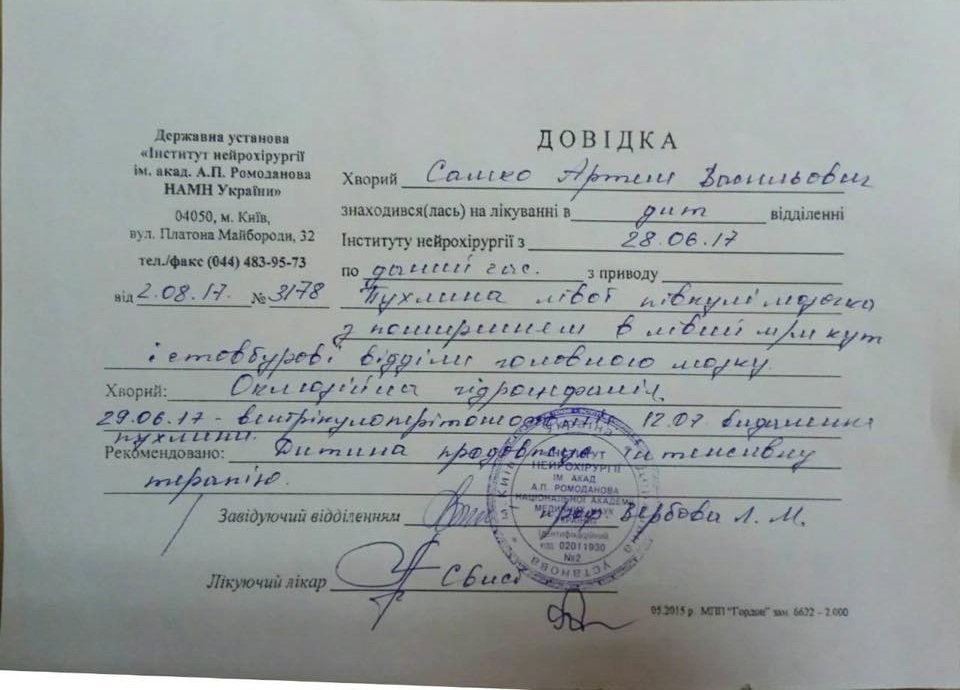 Державна установа
«Інститут нейрохірургії
ім. акад. А.П. Ромоданова
НАМН України»
04050, м. Київ,
вул. Платона Майбороди, 32
тел./факс (044) 483-95-73
від 2.08.17. № 3178
ДОВІДКА
Хворий Артем Васильович
знаходився(лась) на лікуванні в дит відділенні
Інституту нейрохірургії з 28.06.17
по даний час. з приводу
Пухлина лівої півкулі мозочка
з поширенням в лівий кут
і стовбурові відділи головного мозку.
Хворий: Оклюзійна гідроцефалія.
29.06.17 - 12.07 видалення
пухлини.
Рекомендовано: Дитина продовжує інтенсивну
терапію.
Завідуючий відділенням проф. Вербова Л. М.
Лікуючий лікар
ІНСТИТУТ
НЕЙРОХІРУРГІЇ
ІМ. АКАД.
А.П. РОМОДАНОВА
НАЦІОНАЛЬНОЇ АКАДЕМІЇ
МЕДИЧНИХ НАУК
УКРАЇНИ
Ідентифікаційний
код 02011930
№2
05.2015 р. МПП "Гордон" зам. 6622 - 2 000